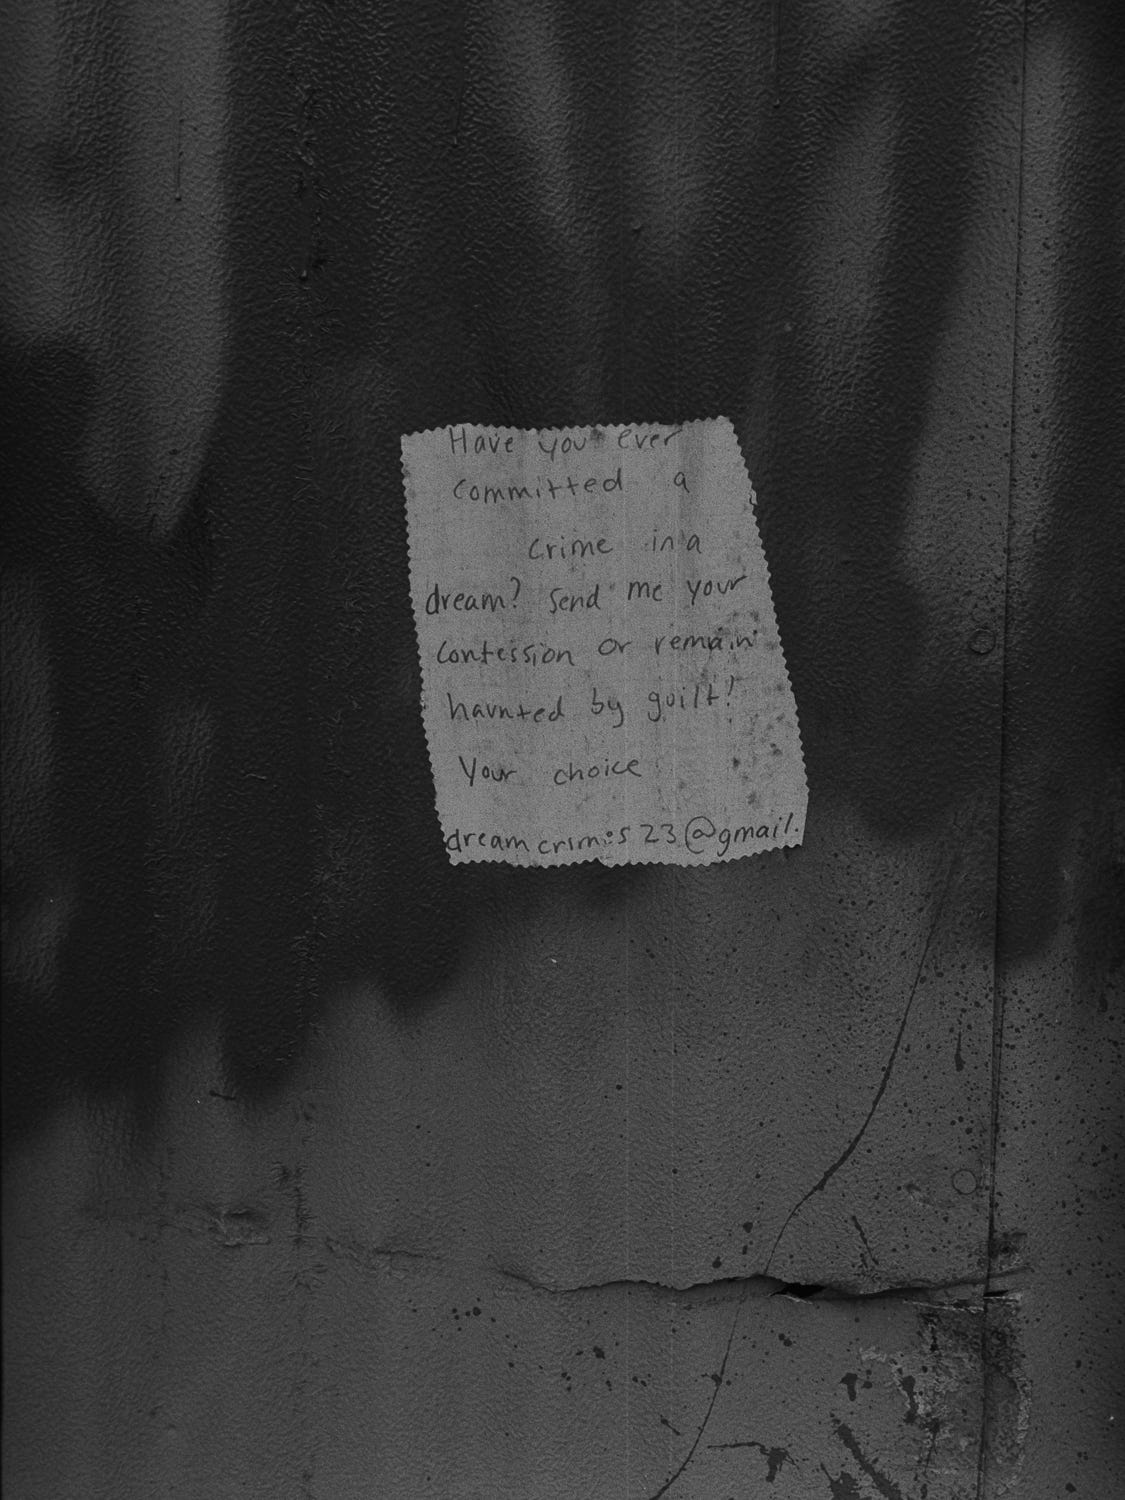 Have you ever
committed a
crime in a
dream? Send me your
confession or remain
haunted by guilt!
Your choice
dreamcrimes23@gmail.